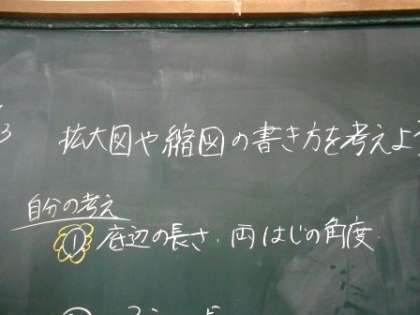 3 拡大図や縮図の書き方を考えよう
自分の考え
① 底辺の長さ、両はじの角度